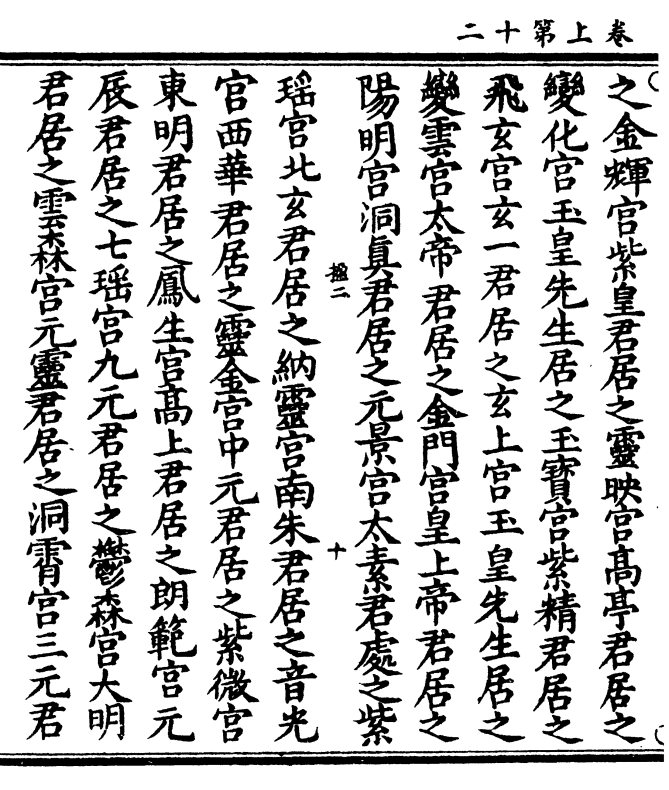 卷上第十二
之金輝宮紫皇君居之靈映宮高亭君居之
變化宮玉皇先生居之玉寶宮紫精君居之
飛玄宮玄一君居之玄上宮玉皇先生居之
變雲宮太帝君居之金門宮皇上帝君居之
陽明宮洞眞君居之元景宮太素君處之紫
搵二
十
瑶宮北玄君居之納靈宮南朱君居之音光
宮西華君居之靈金宮中元君居之紫微宮
東明君居之鳳生宮高上君居之朗範宮元
辰君居之七瑶宮九元君居之鬱森宮大明
君居之雲森宮元靈君居之洞霄宮三元君